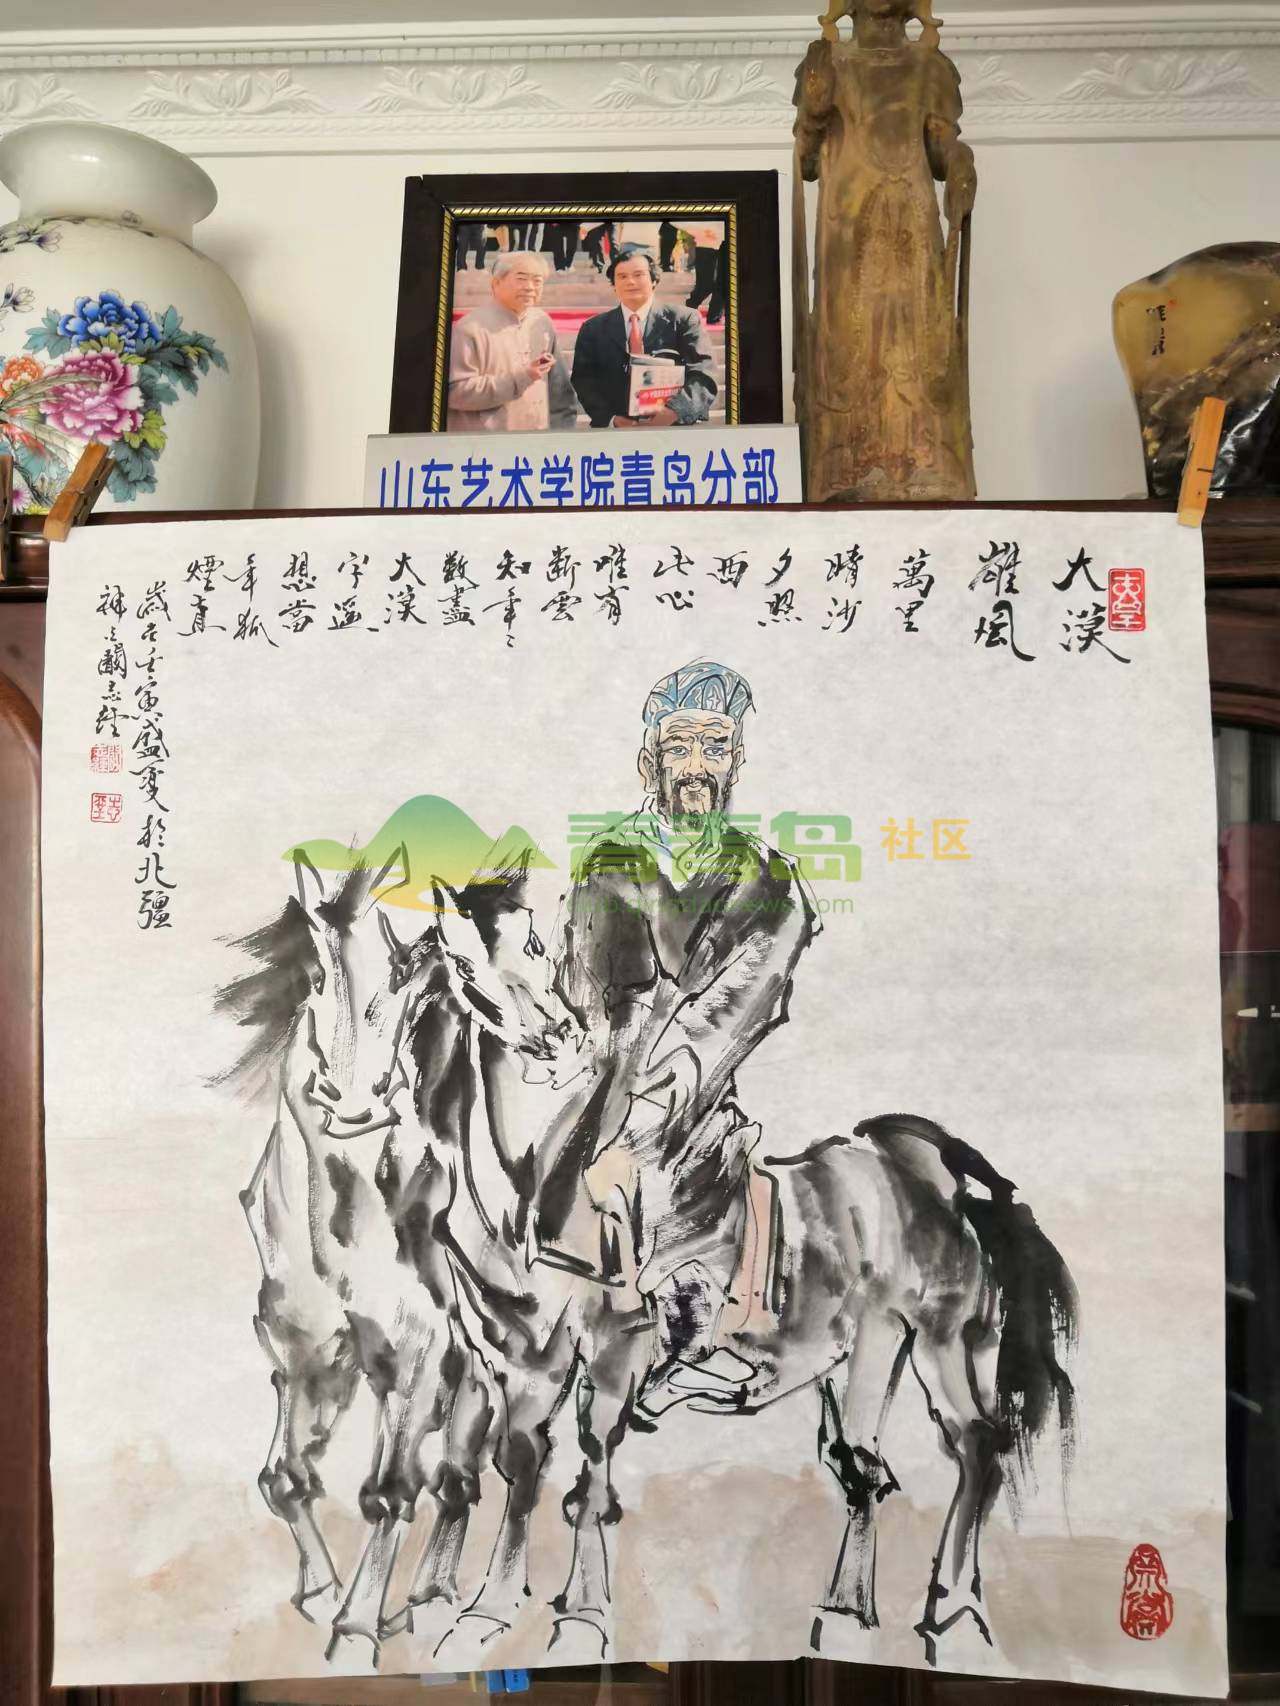 山东艺术学院青岛分部
大漠
雄風
萬里
晴沙
夕照
西
此心
唯有
斷雲
知年々
數盡
大漠
字遥
想當
年孤
煙直
歲在壬寅盛夏於北疆
青青岛
社区
club.qingdaonews.com